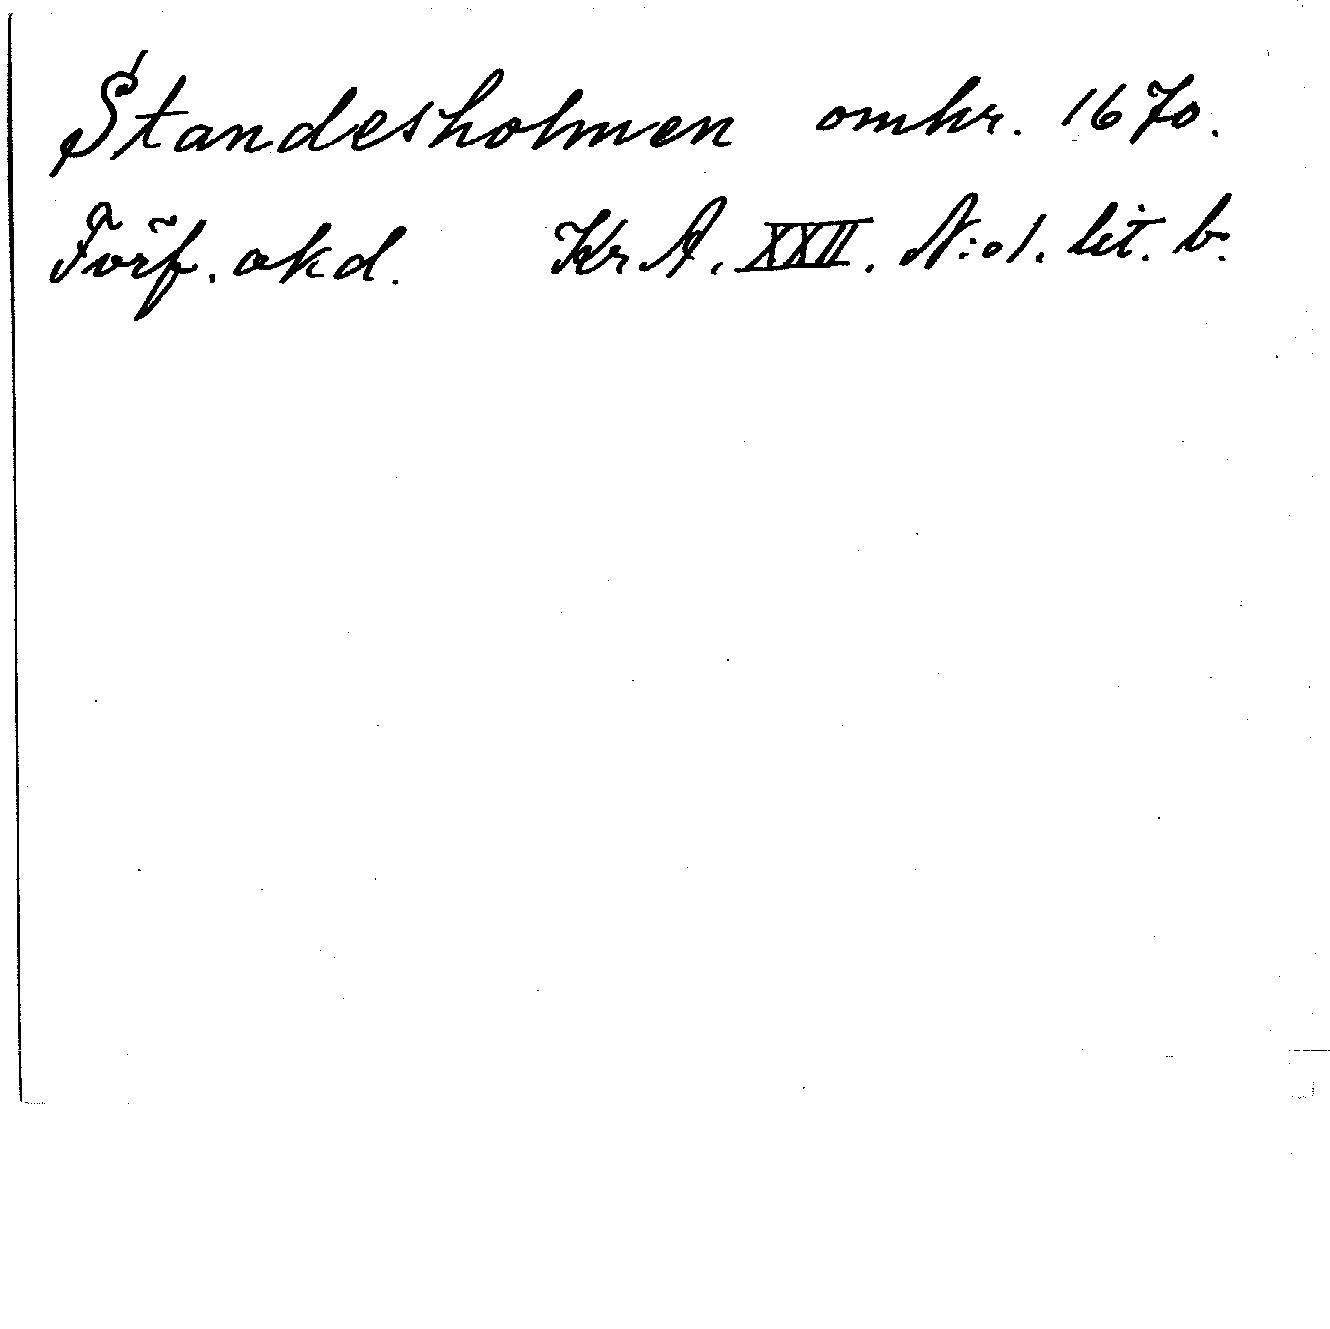 Standesholmen omkr. 1670.
Förf. okd. Kr A. XXII. N:o 1. lit. b.